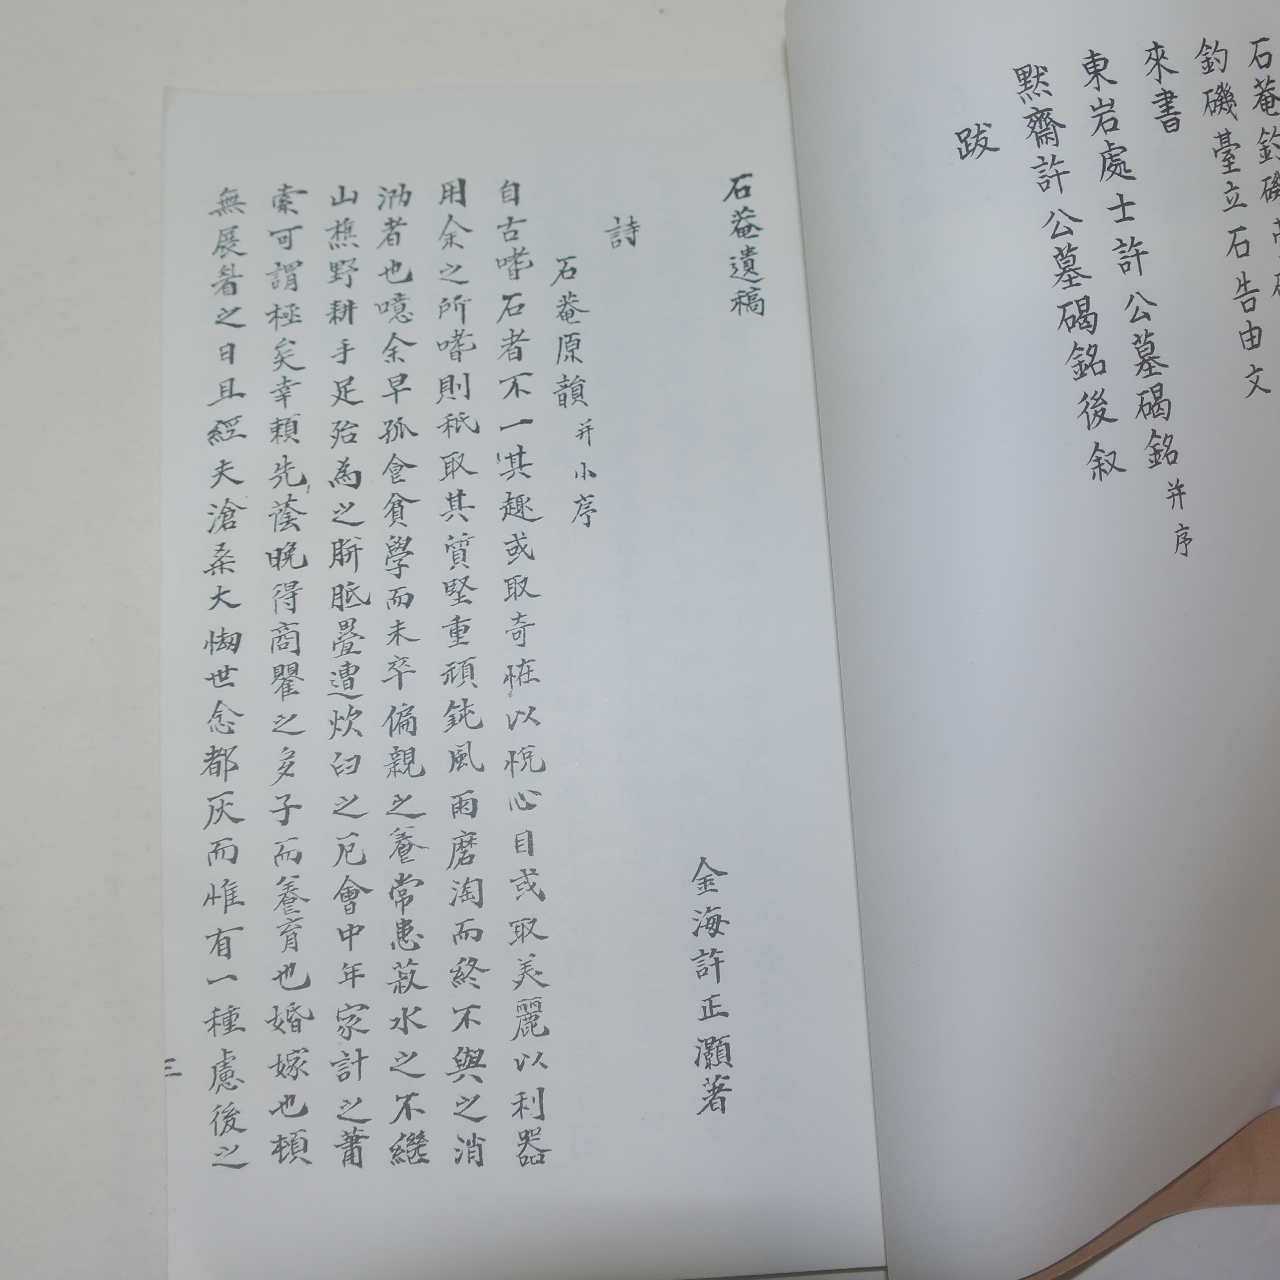 石菴釣磯
釣磯臺立石告由文
來書
東岩處士許公墓碣銘 并序
默齋許公墓碣銘後叙
跋
石菴遺稿
金海許正灝著
詩
石菴原韻 并小序
自古嗜石者不一其趣或取奇怪以悅心目或取美麗以利器
用余之所嗜則秪取其質堅重頑鈍風雨磨淘而終不與之消
泐者也噫余早孤食貧學而未卒偏親之養常患菽水之不繼
山樵野耕手足殆為之胼胝疊遭炊臼之厄會中年家計之蕭
索可謂極矣幸賴先蔭晚得商瞿之多子而養育也婚嫁也頓
無展眷之日且經夫滄桑大惘世念都灰而惟有一種慮後之
三